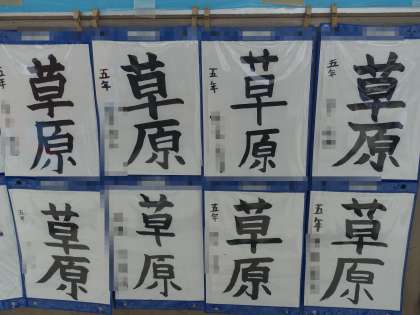 草原
五年
草原
五年
草原
五年
草原
五年
草原
五年
草原
草原
五年
草原
五年